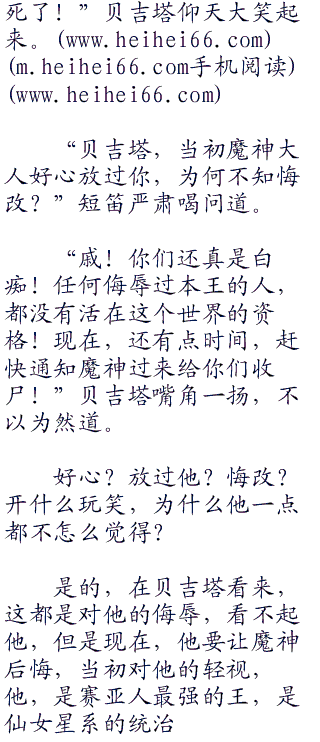 死了！”贝吉塔仰天大笑起
来。(www.heihei66.com)
(m.heihei66.com手机阅读)
(www.heihei66.com)
“贝吉塔，当初魔神大
人好心放过你，为何不知悔
改？”短笛严肃喝问道。
“戚！你们还真是白
痴！任何侮辱过本王的人，
都没有活在这个世界的资
格！现在，还有点时间，赶
快通知魔神过来给你们收
尸！”贝吉塔嘴角一扬，不
以为然道。
好心？放过他？悔改？
开什么玩笑，为什么他一点
都不怎么觉得？
是的，在贝吉塔看来，
这都是对他的侮辱，看不起
他，但是现在，他要让魔神
后悔，当初对他的轻视，
他，是赛亚人最强的王，是
仙女星系的统治